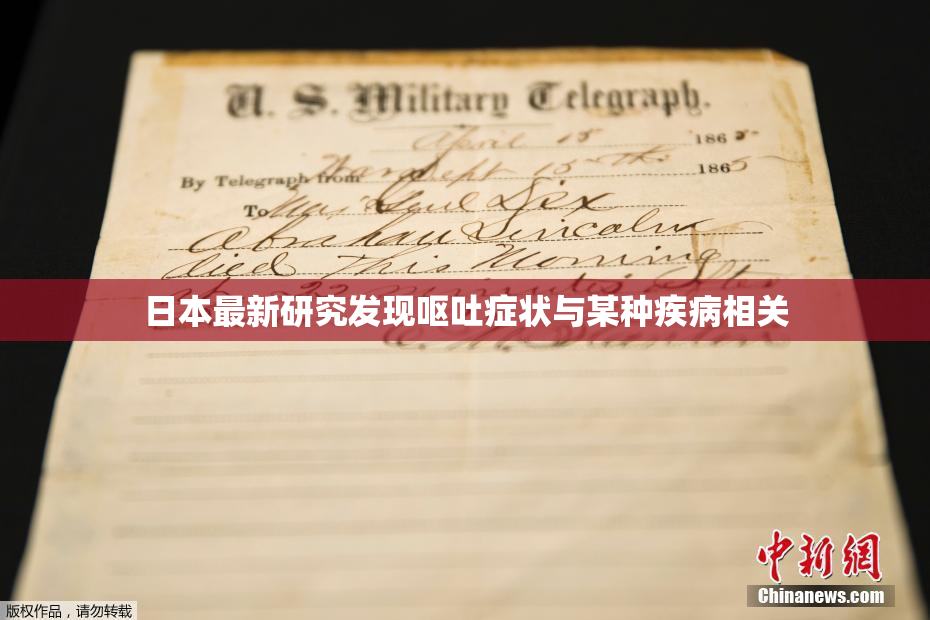 U. S. Military Telegraph.
April 15 1865
By Telegraph from War Dept 15th 1865
To Maj Genl Dix
Abraham Lincoln
died This Morning
at 22 minutes after
日本最新研究发现呕吐症状与某种疾病相关
E. M. Stanton
中新网
Chinanews.com
版权作品，请勿转载